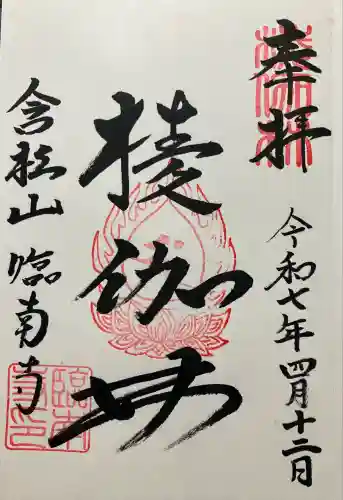 奉拝
令和七年四月十二日
棱伽
含松山 臨南寺
臨南寺印